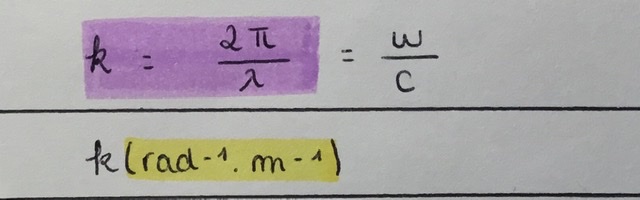 k = 2π/λ = ω/c
k (rad⁻¹. m⁻¹)